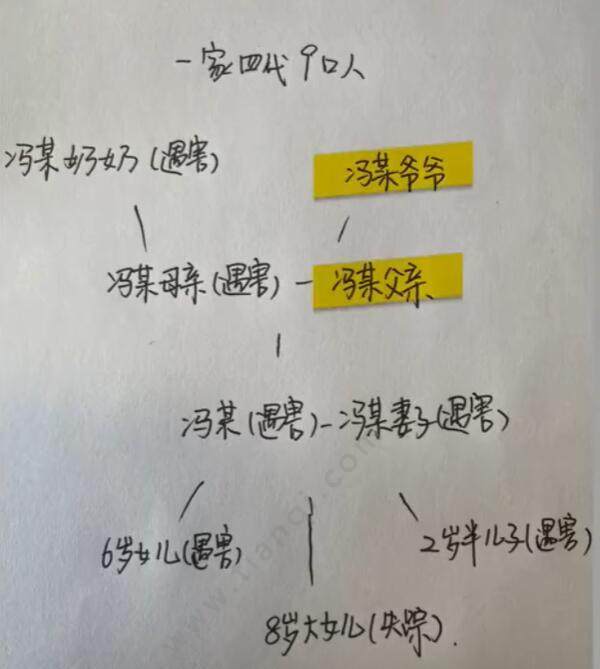 一家四代9口人
冯某奶奶(遇害) 冯某爷爷
冯某母亲(遇害)-冯某父亲、
冯某(遇害)-冯某妻子(遇害)
6岁女儿(遇害) 2岁半儿子(遇害)
8岁大女儿(失踪).